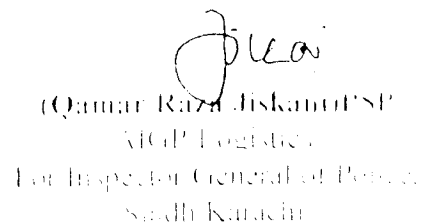 (Qamar Raza Jiskani) PSP
AIGP Logistics
For Inspector General of Police,
Sindh Karachi